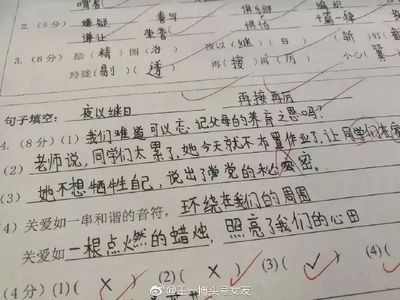 2.(5分) 嫌疑 誊写 俱乐部
谦让 誉 博怕 千篇一律
3.(8分) 励(精)图(治) 夜以(继)(日)
玲珑(剔)(透) 再(接)再(厉) 小心(翼
句子填空: 夜以继日 再接再厉
4.(8分)(1)我们难道可以忘记父母的养育之恩吗?
(2)老师说,同学们太累了,她今天就不布置作业了,让同学们
(3)她不想牺牲自己,说出了党的秘密。
(4)关爱如一串和谐的音符,环绕在我们的周围
关爱如一根点燃的蜡烛,照亮了我们的心田
(4分)(1)(×) (2)(×) (3)(√) (4)(
@王一博头号女友